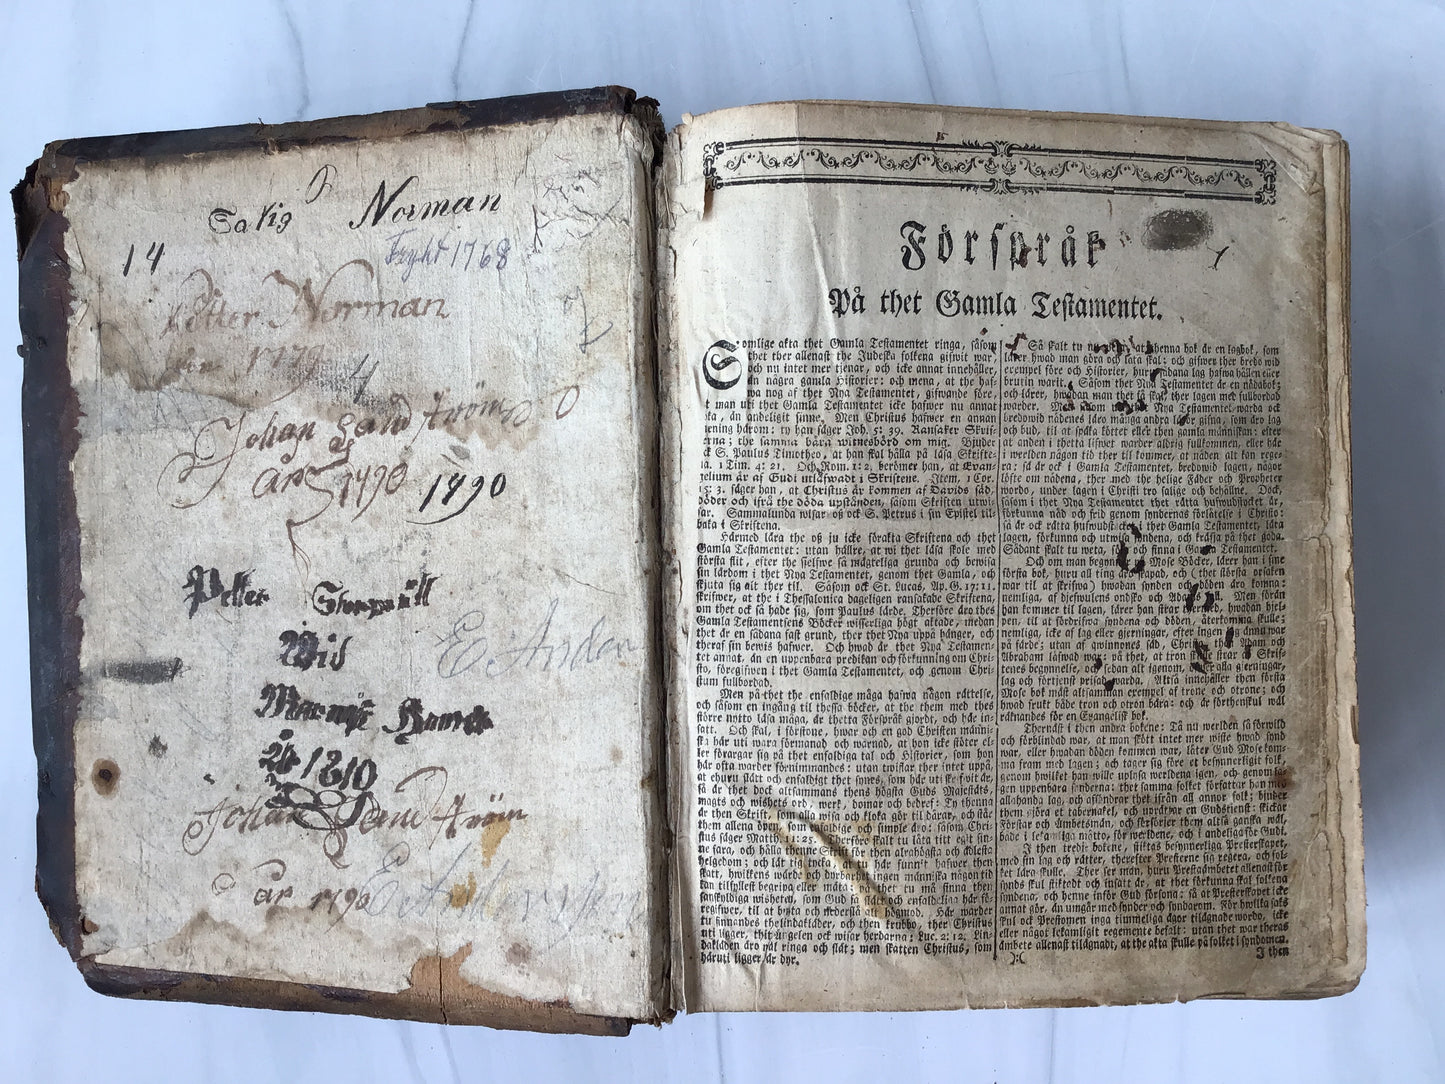 Norman
14
1768
Petter Norman
Johan Sandström
år 1790 1790
Petter
Wid
år 1810
Johan Sandström
år 1790
Förspråk
På thet Gamla Testamentet.
Somlige akta thet Gamla Testamentet ringa, såsom
thet ther allenast the Judeska folkena gifwit war,
och nu intet mer tjenar, och icke annat innehåller,
än några gamla Historier: och mena, at the haf-
wa nog af thet Nya Testamentet, gifwande före,
t man uti thet Gamla Testamentet icke hafwer nu annat
ska, än andeligit sinne. Men Christus hafwer en annan
mening härom: ty han säger Joh. 5: 39. Ransaker Skrif-
terna; the samma bära witnesbörd om mig. Bjuder
ock S. Paulus Timotheo, at han skal hålla på läsa Skrifte-
na. 1 Tim. 4: 21. Och Rom. 1: 2, berömer han, at Evan-
gelium är af Gudi utläfwadt i Skriftene. Item, 1 Cor.
15: 3. säger han, at Christus är kommen af Davids säd,
döder och ifrå the döda upständen, såsom Skriften utwi-
sar. Sammalunda wisar oß ock S. Petrus i sin Epistel til-
baka i Skriftena.
Härmed lära the oß ju icke förakta Skriftena och thet
Gamla Testamentet: utan hällre, at wi thet läsa skole med
största flit, efter the sjelfwe så mägteliga grunda och bewisa
sin lärdom i thet Nya Testamentet, genom thet Gamla, och
skjuta sig alt ther til. Såsom ock St. Lucas, Ap. G. 17: 11.
skrifwer, at the i Thessalonica dageligen ransakade Skriftena,
om thet ock så hade sig, som Paulus lärde. Therföre äro thes
Gamla Testamentsens Böcker wisserliga högt aktade, medan
thet är en sådana fast grund, ther thet Nya uppå hänger, och
theraf sin bewis hafwer. Och hwad är thet Nya Testamen-
tet annat, än en uppenbara predikan och förkunning om Chri-
sto, föregifwen i thet Gamla Testamentet, och genom Chri-
stum fullbordad.
Men på thet the enfaldige måga hafwa någon rättelse,
och såsom en ingång til thessa böcker, at the them med thes
större nytto läsa måga, är thetta Förspråk gjordt, och här in-
satt. Och skal, i förstone, hwar och en god Christen männi-
ska här uti wara förmanad och warnad, at hon icke stöter el-
ler förargar sig på thet enfaldiga tal och Historier, som hon
här ofta warder förnimmandes: utan twiflar ther intet uppå,
at ehuru slätt och enfaldigt thet synes, som här uti skrifwit är,
så är thet dock altsammans thens högsta Guds Majestäts,
magts och wishets ord, werk, domar och bedref: Ty thenna
är then Skrift, som alla wisa och kloka gör til dårar, och står
them allena öpen, som enfaldige och simple äro: såsom Chri-
stus säger Matth. 11: 25. Therföre skalt tu låta titt egit sin-
ne fara, och hålla thenne Skrift för then alrahögsta och ädlesta
helgedom; och låt tig tycka, at tu här funnit hafwer then
skatt, hwilkens wärde och dyrbarhet ingen människa någon tid
kan tilfyllest begripa eller mäta på thet tu må finna then
sanskyldiga wisheten, som Gud så slätt och enfaldelina här fö-
regifwer, til at bryta och nederslå högmod. Här warder
tu finnandes thelindakläder, och then krubbo, ther Christus
uti ligger, thit Ängelen ock wisar herdarna; Luc. 2: 12. Lin-
dakläden äro wäl ringa och slätt; men skatten Christus, som
häruti ligger, är dyr.
Så skalt tu nu weta, at thenna bok är en lagbok, som
lärer hwad man göra och låta skal; och gifwer ther bredo wid
exempel före och Historier, huru sådana lag hafwa hållen eller
brutin warit. Såsom thet Nya Testamentet är en nådabok;
och lärer, hwadan man thet så skal ther lagen med fullbordad
warder. Men såsom uti thet Nya Testamentet warda ock
bredowid nådenes läro många andra läror gifna, som äro lag
och bud, til at späka köttet eller then gamla människan: efter
at anden i thetta lifwet warder aldrig fullkommen, eller här
i werlden någon tid ther til kommer, at nåden alt kan rege-
ra: så är ock i Gamla Testamentet, bredowid lagen, någor
löfte om nådena, ther med the helige Fäder och Propheter
wordo, under lagen i Christi tro salige och behållne. Dock,
såsom i thet Nya Testamentet thet rätta hufwudstycket är,
förkunna nåd och frid genom syndernas förlåtelse i Christo:
så är ock rätta hufwudstycket i thet Gamla Testamentet, lära
lagen, förkunna och utwisa syndena, och kräfja på thet goda.
Sådant skalt tu weta, söka och finna i Gamla Testamentet.
Och om man begynner på Mose Böcker, lärer han i sine
första bok, huru all ting äro skapad, och (thet största orsaken
war til at skrifwa) hwadan synden och döden äro komna:
nemliga, af djefwulens ondsko och Adams fall. Men förän
han kommer til lagen, lärer han strax thermed, hwadan hjel-
pen, til at fördrifwa syndena och döden, återkomma skulle;
nemliga, icke af lag eller gjerningar, efter ingen lag ännu war
ther; utan af qwinnones säd, Christo, then Adam och
Abraham läfwad war: på thet, at tron skulle strax af Skrif-
tenes begynnelse, och sedan alt igenom, öfwer alla gjerningar,
lag och förtjenst prisad warda. Altså innehåller then första
Mose bok mäst altsamman exempel af trone och otrone; och
hwad frukt både tron och otron bära: och är förthenskul wäl
räknandes för en Evangelisk bok.
Thernäst i then andra bokene: Tå nu werlden så förwild
och förblindad war, at man skött intet mer wiste hwad synd
war, eller hwadan döden kommen war, låter Gud Mose kom-
ma fram med lagen; och tager sig före et besynnerligit folk,
genom hwilket han wille uplysa werldena igen, och genom la-
gen uppenbara synderna: thet samma folket författar han med
allahanda lag, och afsöndrar thet ifrån all annor folk; bjuder
them gjöra et tabernakel, och uprättar en Gudstienst: skickar
Förstar och Ämbetsmän, och försörjer them altså ganska wäl,
både i lekamliga måtto, för werldene, och i andeliga för Gudi.
I then tredje bokene, stiktas besynnerliga Presterskapet,
med sin lag och rätter, therefter Presterne sig regera, och fol-
ket lära skulle. Ther ser man, huru Prestaämbetet allenast för
synds skul stiktadt och insatt är, at thet förkunna skal folkena
syndena, och henne inför Gud försona: så at Presterskapet icke
annat gör, än umgår med synder och syndarom. För hwilka saks
skul ock Prestomen inga timmeliga ägor tilägnade wordo, icke
eller något lekamligit regemente befalt: utan thet war theras
ämbete allenast tilägnadt, at the akta skulle på folket i syndomen.
I then